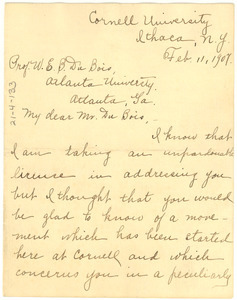 Cornell University
Ithaca, N.Y.
Feb. 11, 1907.
Prof. W. E. B. Du Bois,
Atlanta University,
Atlanta, Ga.
My dear Mr. Du Bois,—
I know that
I am taking an unpardonable
license in addressing you
but I thought that you would
be glad to know of a move-
ment which has been started
here at Cornell and which
concerns you in a peculiarly
21-4-183